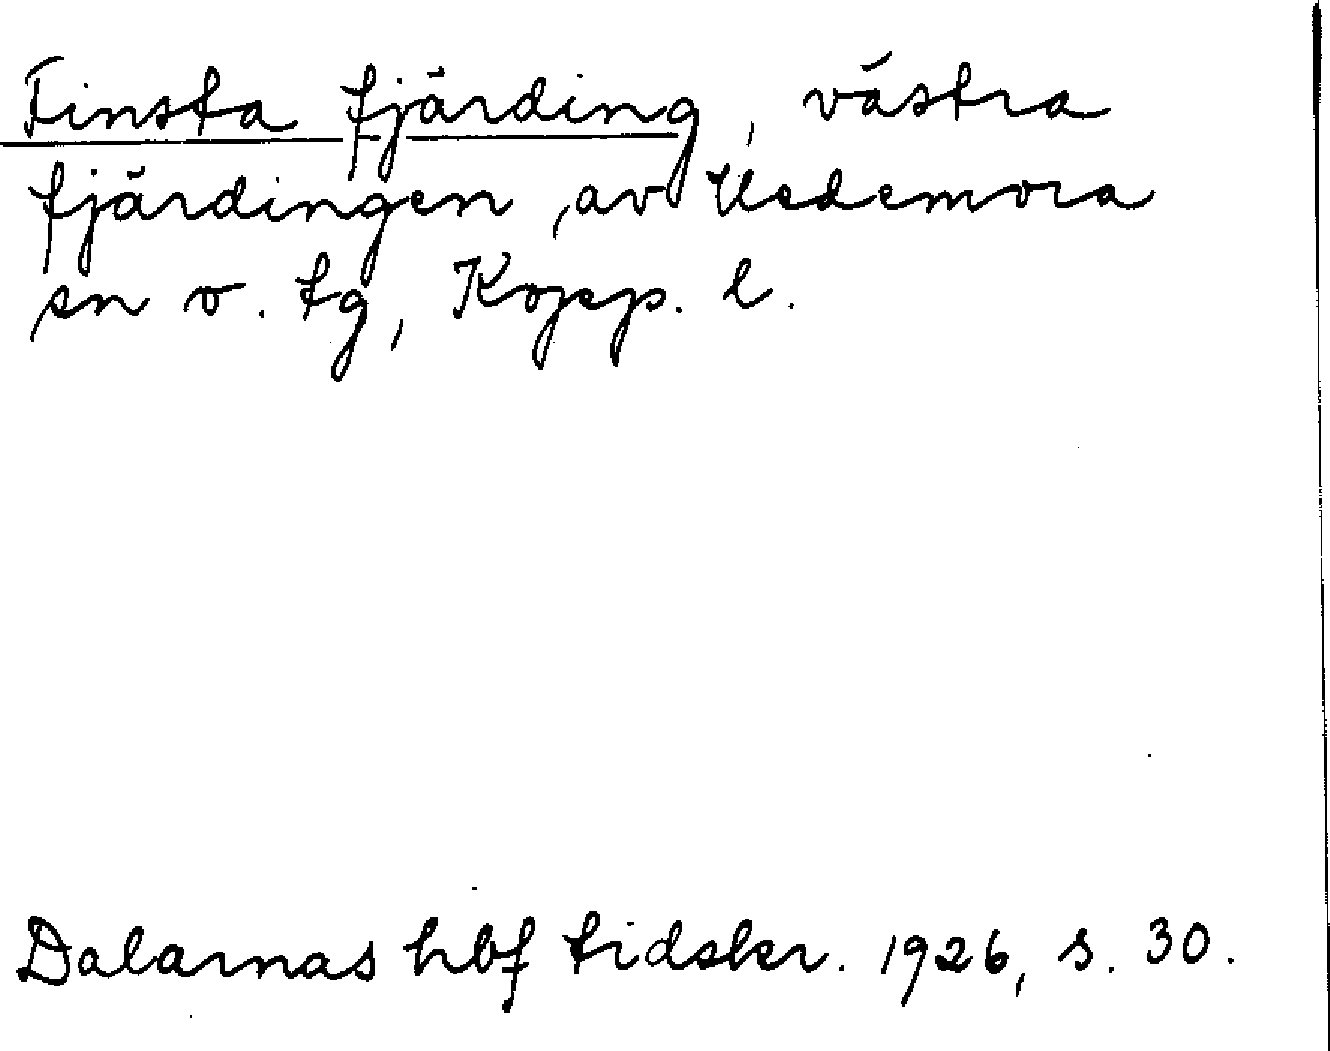 Finsta fjärding, västra
fjärdingen, av Hedemora
sn o. tg, Kopp. l.
Dalarnas hbf tidskr. 1926, s. 30.